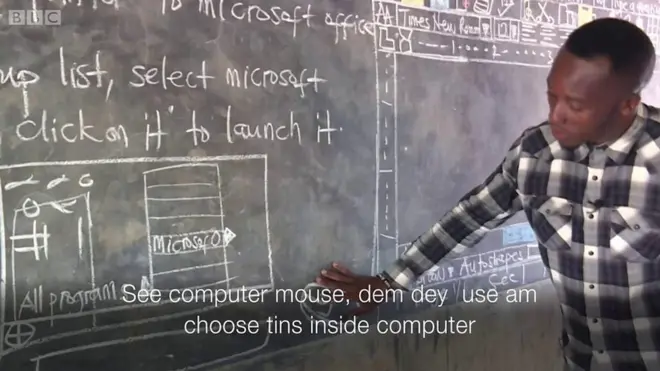 BBC
to microsoft office
up list, select microsoft
click on it" to launch it.
Times New Roman 12
Microsof
All program
Autoshapes
See computer mouse, dem dey use am
choose tins inside computer